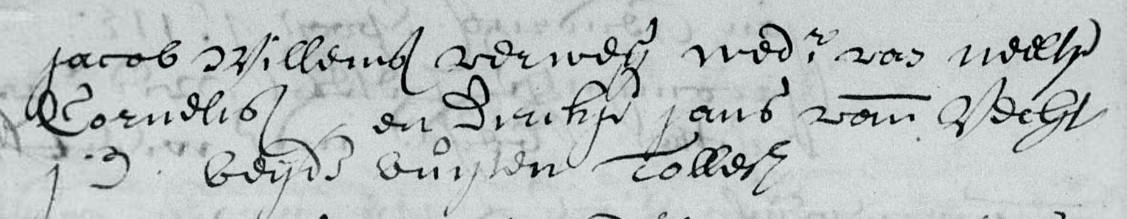 Jacob Willems verweij wedr van neeltje
Cornelis en Dirckje jans van Vecht
j D beyde buijten Tolles